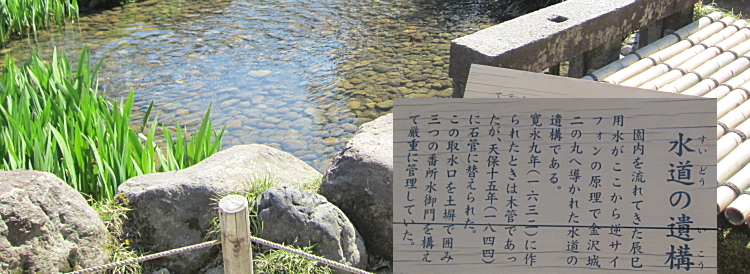 水道の遺構
すいどう
いこう
園内を流れてきた辰巳
用水がここから逆サイ
フォンの原理で金沢城
二の丸へ導かれた水道の
遺構である。
寛永九年(一六三二)に作
られたときは木管であっ
たが、天保十五年(一八四四)
に石管に替えられた。
この取水口を土塀で囲み
三つの番所水御門を構え
て厳重に管理していた。